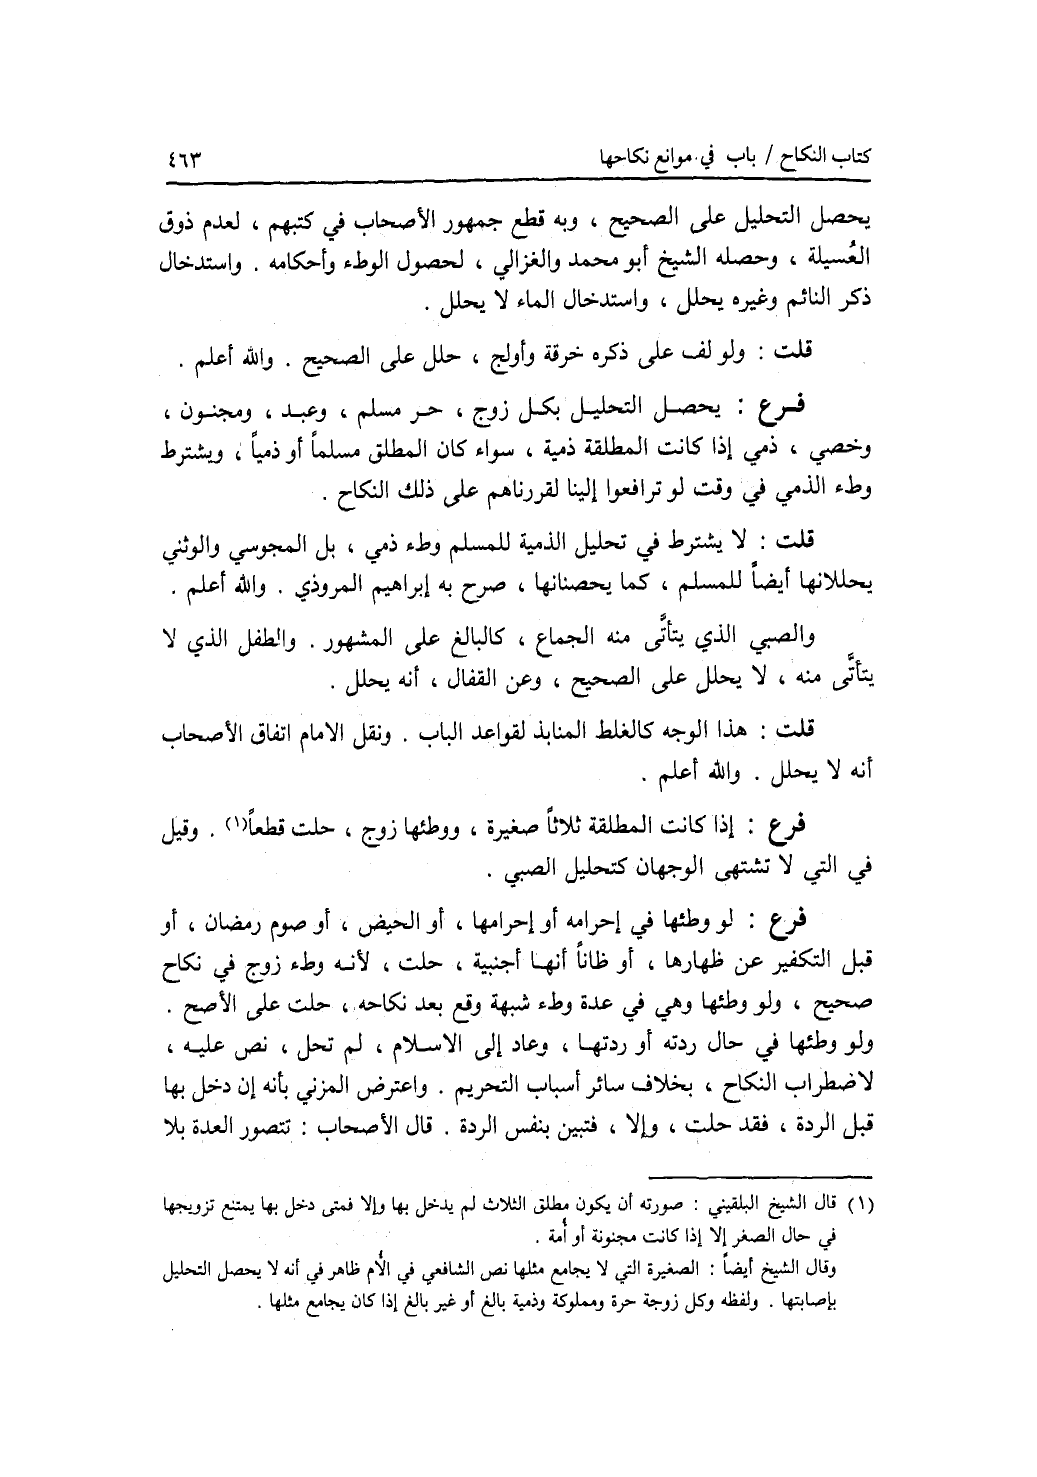 كتاب النكاح / باب في موانع نكاحها ٤٦٣
يحصل التحليل على الصحيح ، وبه قطع جمهور الأصحاب في كتبهم ، لعدم ذوق
العُسيلة ، وحصله الشيخ أبو محمد والغزالي ، لحصول الوطء وأحكامه . واستدخال
ذكر النائم وغيره يحلل ، واستدخال الماء لا يحلل .
قلت : ولو لف على ذكره خرقة وأولج ، حلل على الصحيح . والله أعلم .
فـرع : يحصـل التحليـل بكـل زوج ، حـر مسلم ، وعبـد ، ومجنـون ،
وخصي ، ذمي إذا كانت المطلقة ذمية ، سواء كان المطلق مسلماً أو ذمياً ، ويشترط
وطء الذمي في وقت لو ترافعوا إلينا لقررناهم على ذلك النكاح .
قلت : لا يشترط في تحليل الذمية للمسلم وطء ذمي ، بل المجوسي والوثني
يحللانها أيضاً للمسلم ، كما يحصنانها ، صرح به إبراهيم المروذي . والله أعلم .
والصبي الذي يتأتَّى منه الجماع ، كالبالغ على المشهور . والطفل الذي لا
يتأتَّى منه ، لا يحلل على الصحيح ، وعن القفال ، أنه يحلل .
قلت : هذا الوجه كالغلط المنابذ لقواعد الباب . ونقل الامام اتفاق الأصحاب
أنه لا يحلل . والله أعلم .
فرع : إذا كانت المطلقة ثلاثاً صغيرة ، ووطئها زوج ، حلت قطعاً(١) . وقيل
في التي لا تشتهى الوجهان كتحليل الصبي .
فرع : لو وطئها في إحرامه أو إحرامها ، أو الحيض ، أو صوم رمضان ، أو
قبل التكفير عن ظهارها ، أو ظاناً أنهـا أجنبية ، حلت ، لأنـه وطء زوج في نكاح
صحيح ، ولو وطئها وهي في عدة وطء شبهة وقع بعد نكاحه ، حلت على الأصح .
ولو وطئها في حال ردته أو ردتهـا ، وعاد إلى الاسـلام ، لم تحل ، نص عليـه ،
لاضطراب النكاح ، بخلاف سائر أسباب التحريم . واعترض المزني بأنه إن دخل بها
قبل الردة ، فقد حلت ، وإلا ، فتبين بنفس الردة . قال الأصحاب : تتصور العدة بلا
(١) قال الشيخ البلقيني : صورته أن يكون مطلق الثلاث لم يدخل بها وإلا فمتى دخل بها يمتنع تزويجها
في حال الصغر إلا إذا كانت مجنونة أو أمة .
وقال الشيخ أيضاً : الصغيرة التي لا يجامع مثلها نص الشافعي في الأم ظاهر في أنه لا يحصل التحليل
بإصابتها . ولفظه وكل زوجة حرة ومملوكة وذمية بالغ أو غير بالغ إذا كان يجامع مثلها .